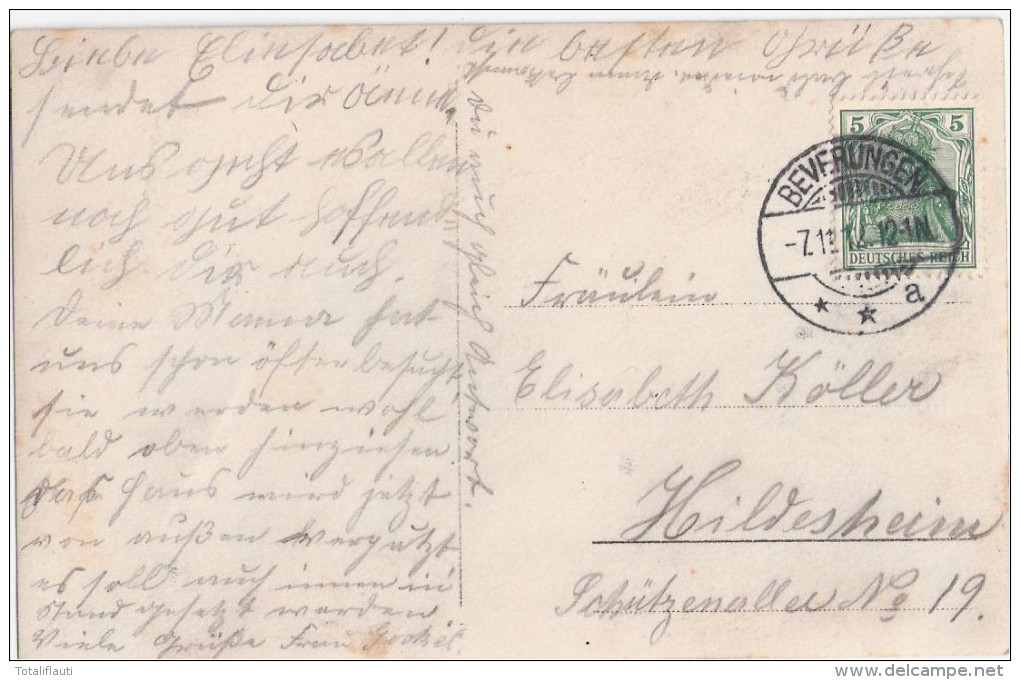 Liebe Elinsabet! die besten Grüße
sendet dir Änna,
Uns geht es allen
noch gut hoffend
lich dir auch.
Deine Mama hat
uns schon öfter besucht
sie werden wohl
bald oben hinziehen
das Haus wird jetzt
von außen verputzt
es soll auch innen in
stand gesetzt werden
Viele Grüße Frau
auch gleich Antwort.
5 5
DEUTSCHES REICH
BEVERUNGEN
-7.11.12-1N.
a
Fräulein
Elisabeth Köller
Hildesheim
Schützenallee No 19.
Totaliflauti
www.delcampe.net